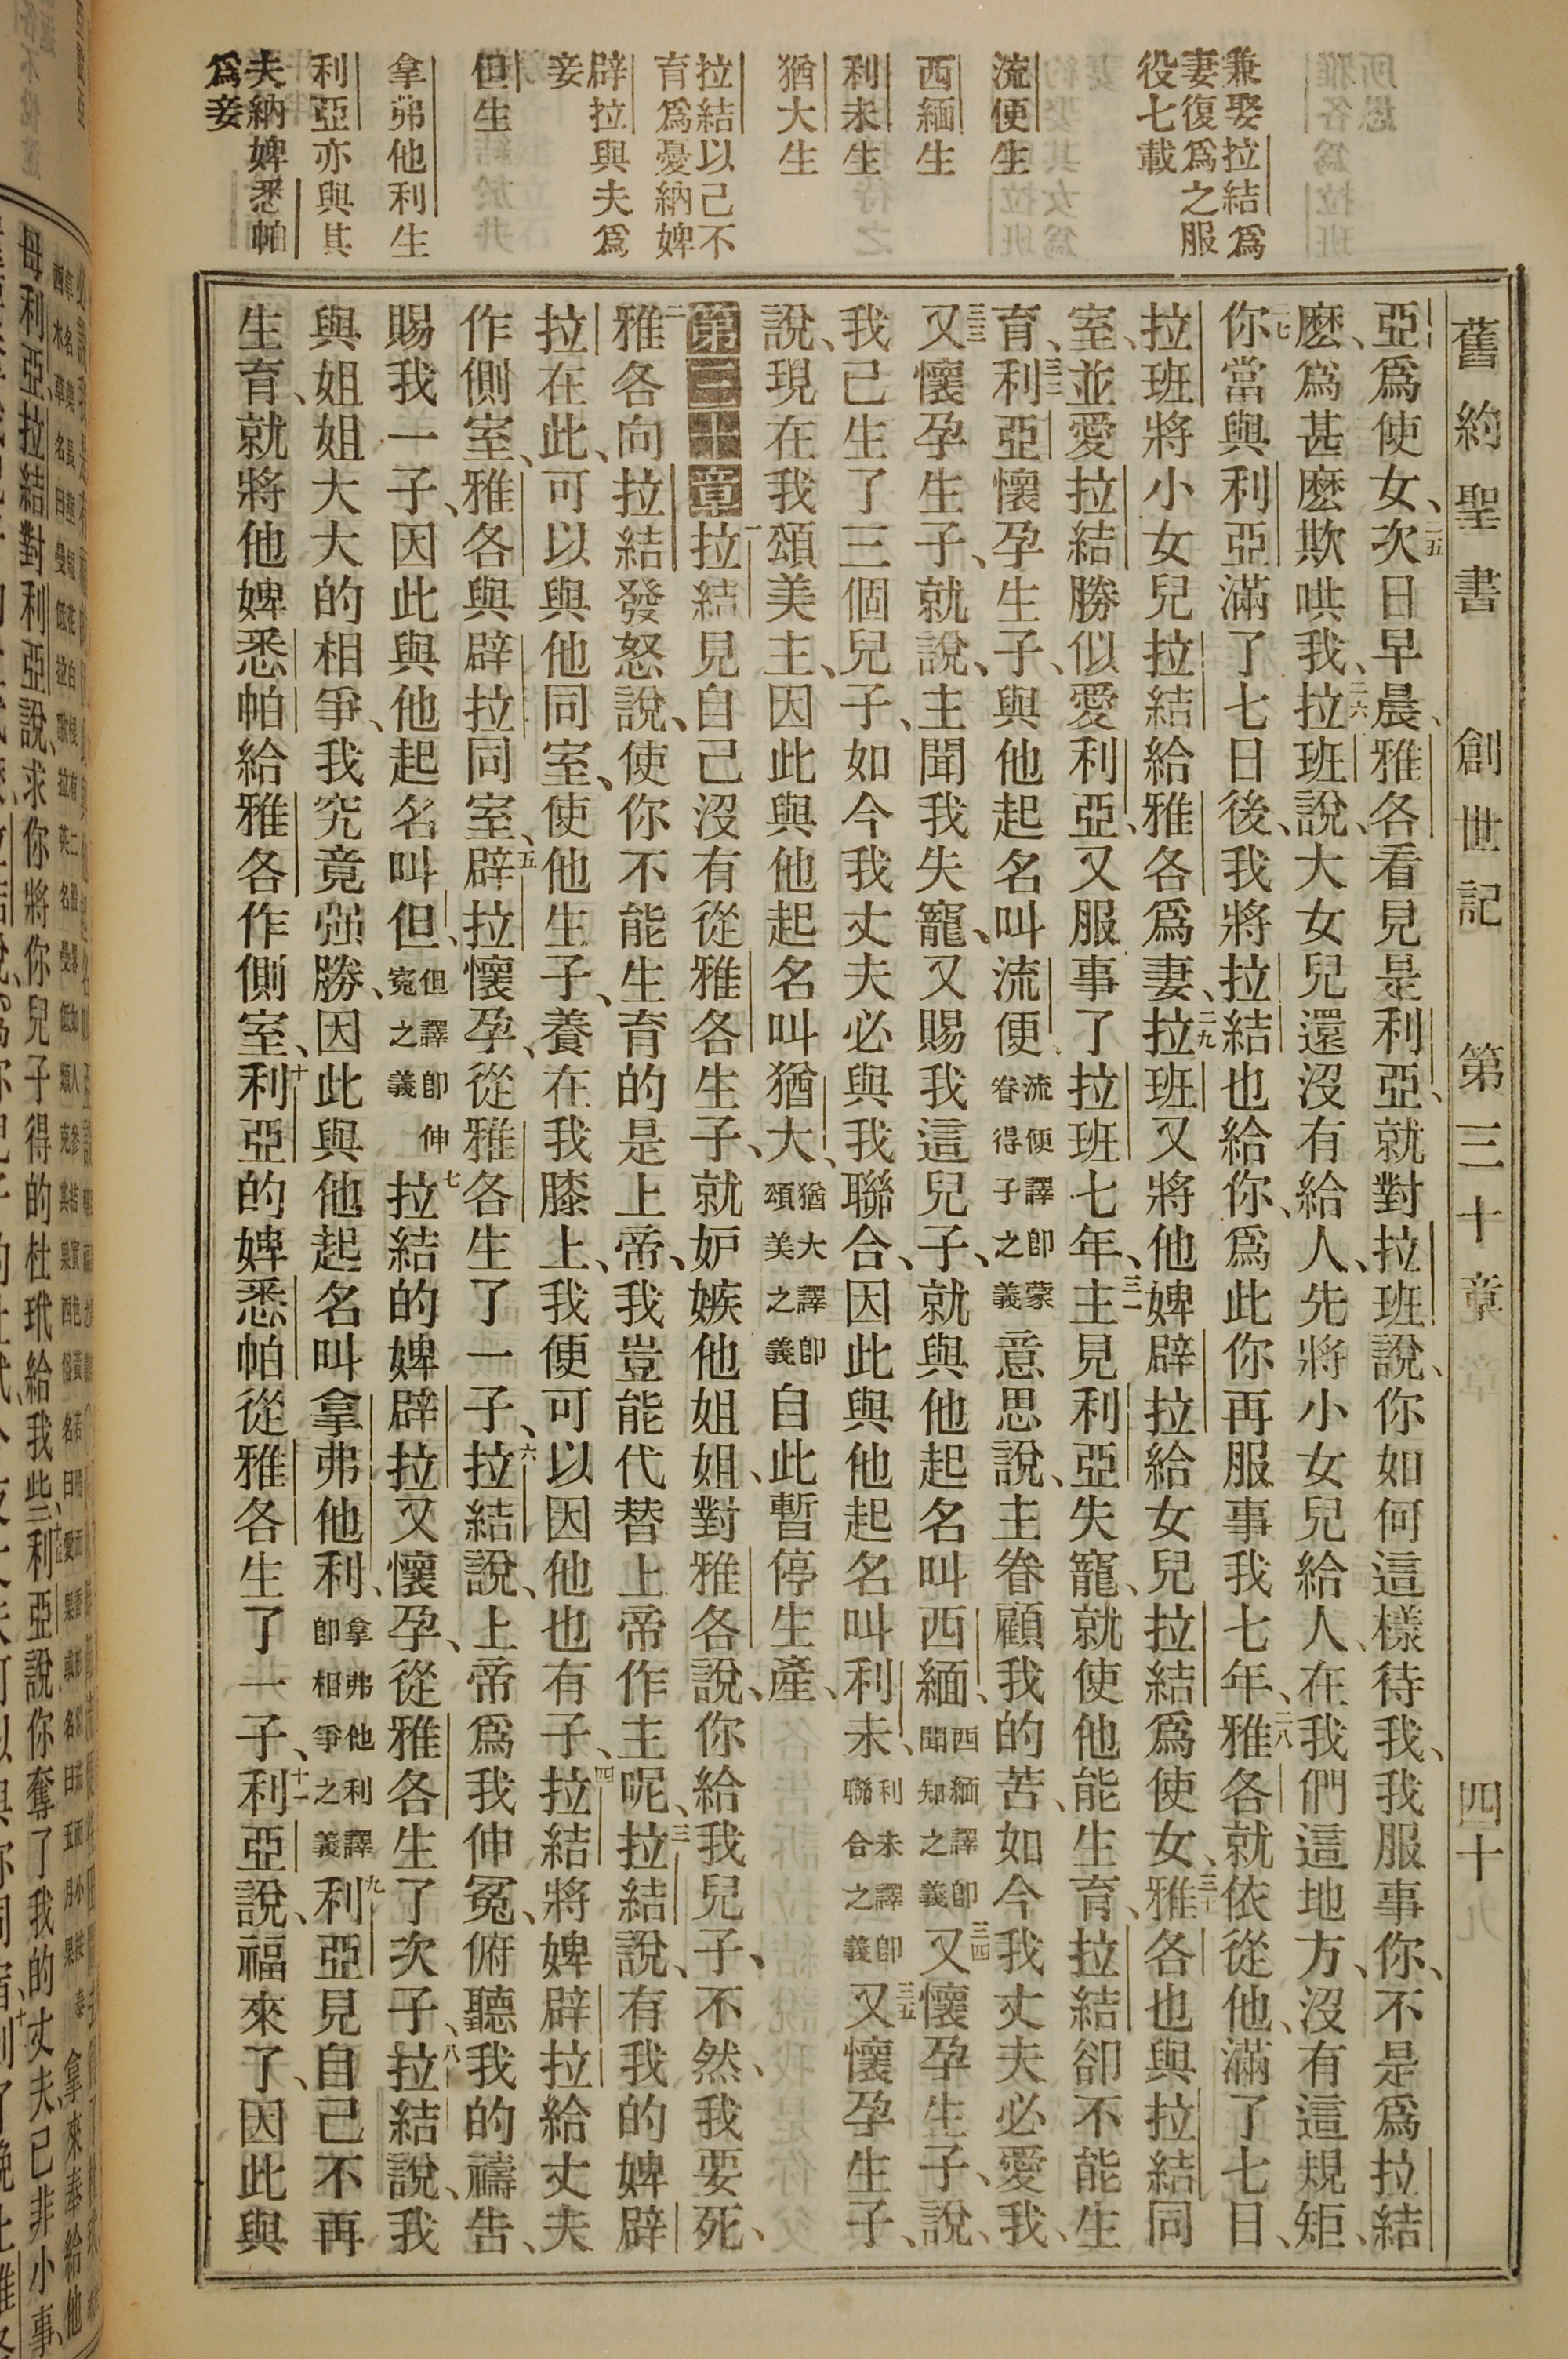 舊約聖書 創世記 第三十章 四十
兼娶拉結爲
妻復爲之服
役七載
流便生
西緬生
利未生
猶大生
拉結以己不
育爲憂納婢
辟拉與夫爲
妾
但生
拿弗他利生
利亞亦與其
夫納婢悉帕
爲妾
亞爲使女、二五次日早晨、雅各看見是利亞、就對拉班說、你如何這樣待我、我服事你、不是爲拉結
麽、爲甚麽欺哄我、二六拉班說、大女兒還沒有給人、先將小女兒給人、在我們這地方、沒有這規矩、
二七你當與利亞滿了七日後、我將拉結也給你、爲此你再服事我七年、二八雅各就依從他、滿了七日、
拉班將小女兒拉結給雅各爲妻、二九拉班又將他婢辟拉給女兒拉結爲使女、三十雅各也與拉結同
室、並愛拉結勝似愛利亞、又服事了拉班七年、三一主見利亞失寵、就使他能生育、拉結卻不能生
育、三二利亞懷孕生子、與他起名叫流便、流便譯卽蒙眷得子之義意思說、主眷顧我的苦、如今我丈夫必愛我、
三三又懷孕生子、就說、主聞我失寵、又賜我這兒子、就與他起名叫西緬、西緬譯卽聞知之義三四又懷孕生子、說、
我已生了三個兒子、如今我丈夫必與我聯合、因此與他起名叫利未、利未譯卽聯合之義三五又懷孕生子、
說、現在我頌美主、因此與他起名叫猶大、猶大譯卽頌美之義自此暫停生產、
第三十章一拉結見自己沒有從雅各生子、就妒嫉他姐姐、對雅各說、你給我兒子、不然、我要死、
二雅各向拉結發怒說、使你不能生育的是上帝、我豈能代替上帝作主呢、三拉結說、有我的婢辟
拉在此、可以與他同室、使他生子、養在我膝上、我便可以因他也有子、四拉結將婢辟拉給丈夫
作側室、雅各與辟拉同室、五辟拉懷孕、從雅各生了一子、六拉結說、上帝爲我伸冤、俯聽我的禱告、
賜我一子、因此與他起名叫但、但譯卽伸寃之義七拉結的婢辟拉又懷孕、從雅各生了次子、八拉結說、我
與姐姐大大的相爭、我究竟强勝、因此與他起名叫拿弗他利、拿弗他利譯卽相爭之義九利亞見自己不再
生育、就將他婢悉帕給雅各作側室、十利亞的婢悉帕從雅各生了一子、十一利亞說、福來了、因此與
母利亞、拉結對利亞說、求你將你兒子得的杜玳給我些、利亞說你奪了我的丈夫、已非小事、